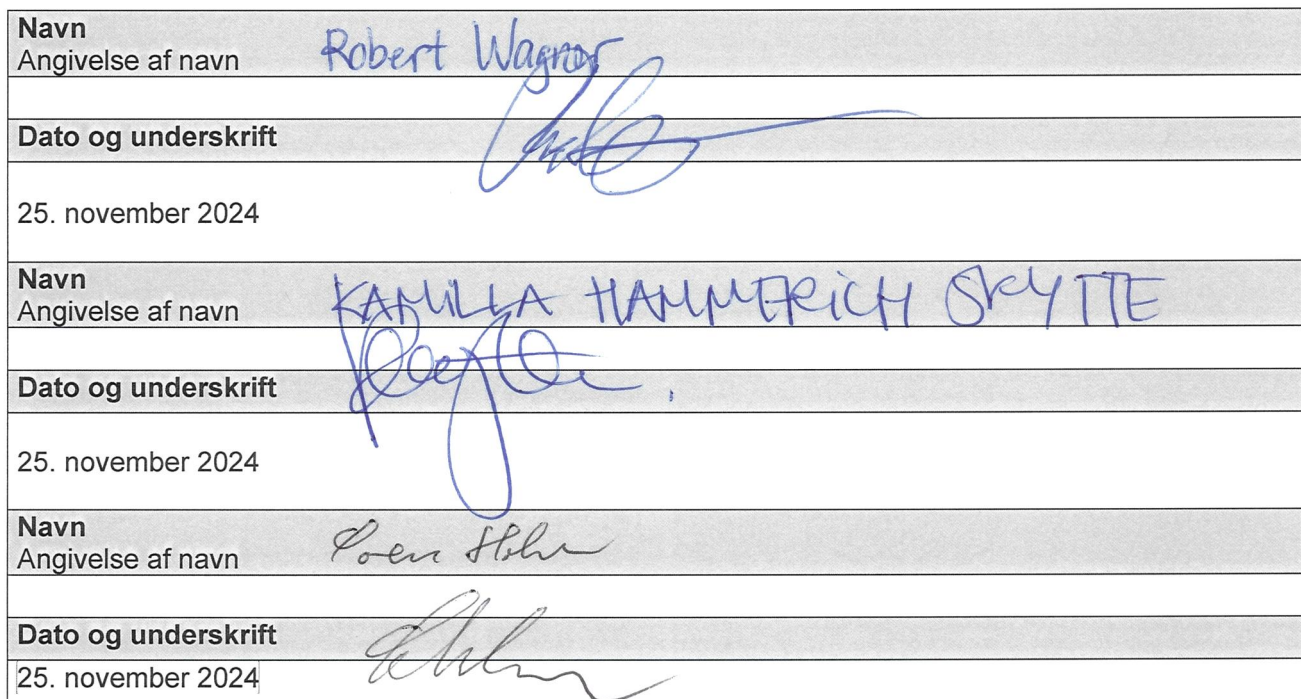 Navn
Angivelse af navn Robert Wagner
Dato og underskrift
25. november 2024
Navn
Angivelse af navn KAMILLA HAMMERICH SKYTTE
Dato og underskrift
25. november 2024
Navn
Angivelse af navn
Dato og underskrift
25. november 2024